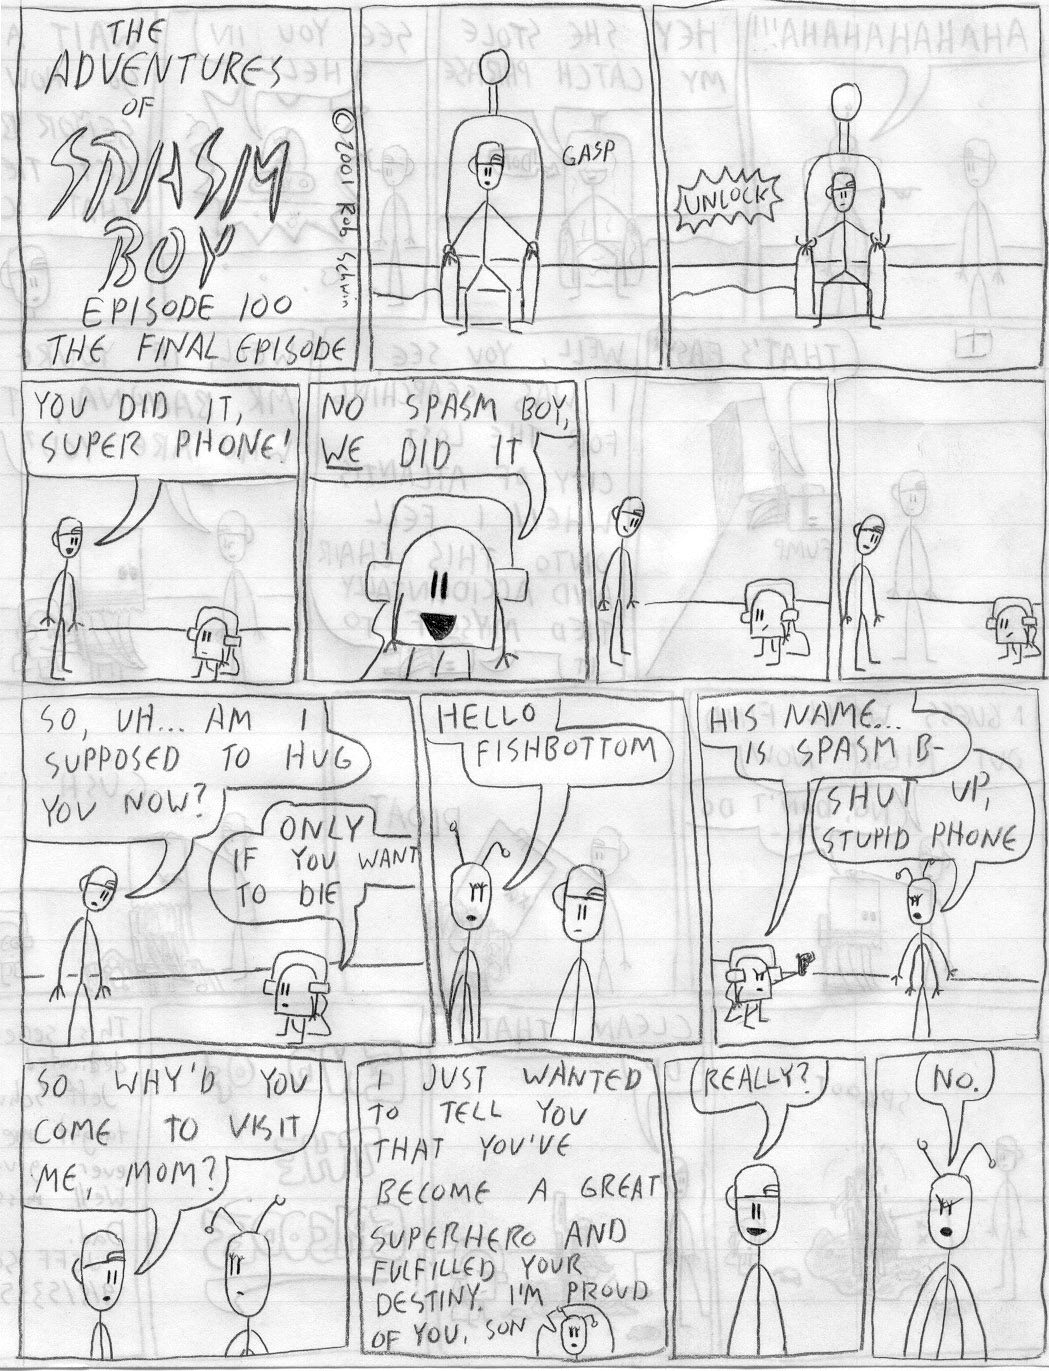 THE
ADVENTURES
OF
SPASM
BOY
EPISODE 100
THE FINAL EPISODE
© 2001 Rob Schwin
GASP
UNLOCK
YOU DID IT,
SUPER PHONE!
NO SPASM BOY,
WE DID IT
SO, UH... AM I
SUPPOSED TO HUG
YOU NOW?
ONLY
IF YOU WANT
TO DIE
HELLO
FISHBOTTOM
HIS NAME...
IS SPASM B-
SHUT UP,
STUPID PHONE
SO WHY'D YOU
COME TO VISIT
ME, MOM?
I JUST WANTED
TO TELL YOU
THAT YOU'VE
BECOME A GREAT
SUPERHERO AND
FULFILLED YOUR
DESTINY. I'M PROUD
OF YOU, SON
REALLY?
NO.